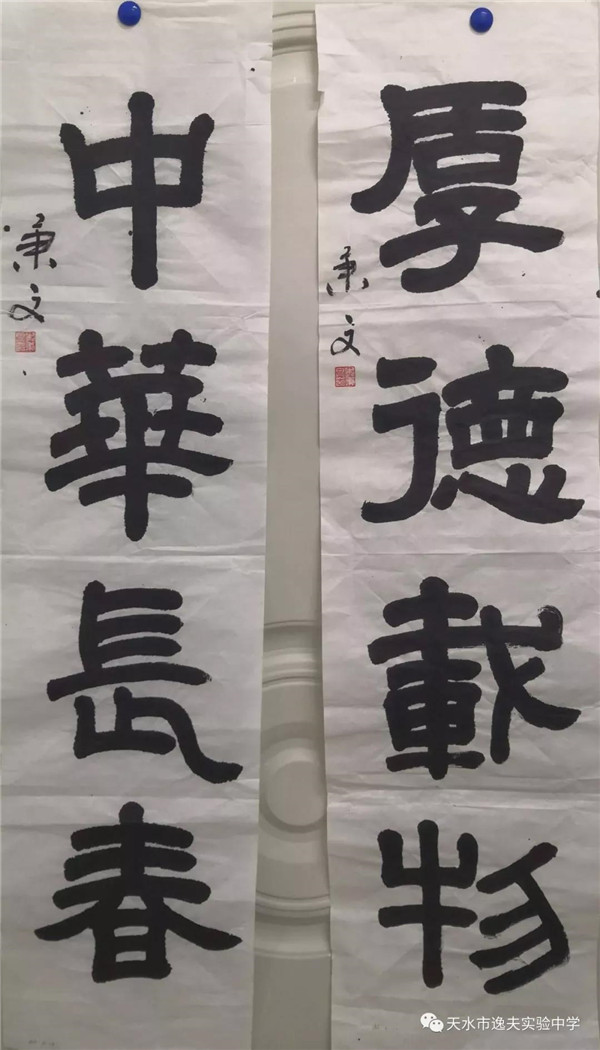 厚德載物
中華長春
天水市逸夫实验中学